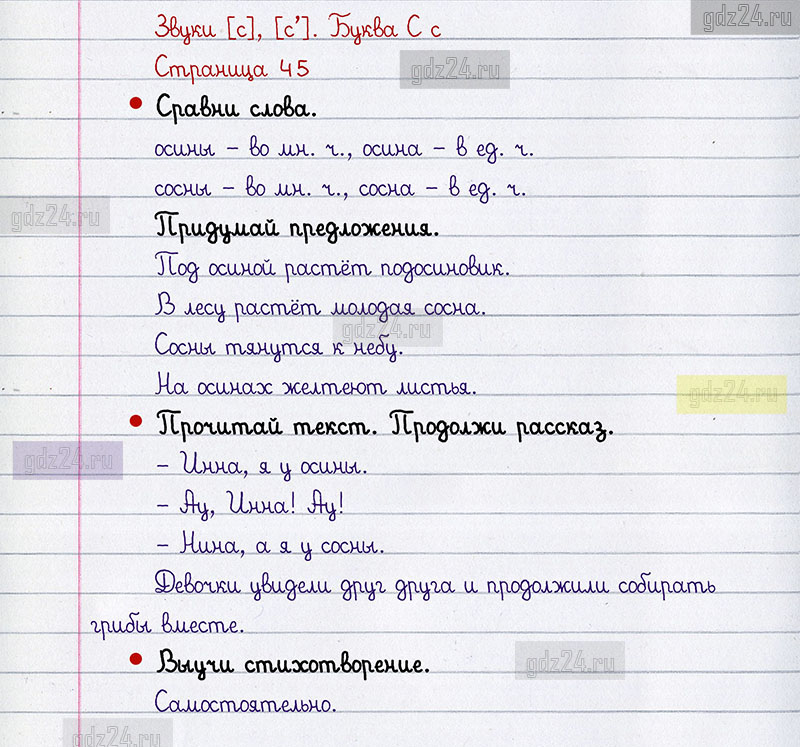 gdz24.ru
Звуки [с], [с’]. Буква С с
Страница 45
gdz24.ru
• Сравни слова.
осины – во мн. ч., осина – в ед. ч.
сосны – во мн. ч., сосна – в ед. ч.
gdz24.ru
Придумай предложения.
Под осиной растёт подосиновик.
В лесу растёт молодая сосна.
gdz24.ru
Сосны тянутся к небу.
На осинах желтеют листья.
gdz24.ru
• Прочитай текст. Продолжи рассказ.
– Инна, я у осины.
gdz24.ru
– Ау, Инна! Ау!
– Нина, а я у сосны.
Девочки увидели друг друга и продолжили собирать
грибы вместе.
• Выучи стихотворение.
gdz24.ru
Самостоятельно.
gdz24.ru